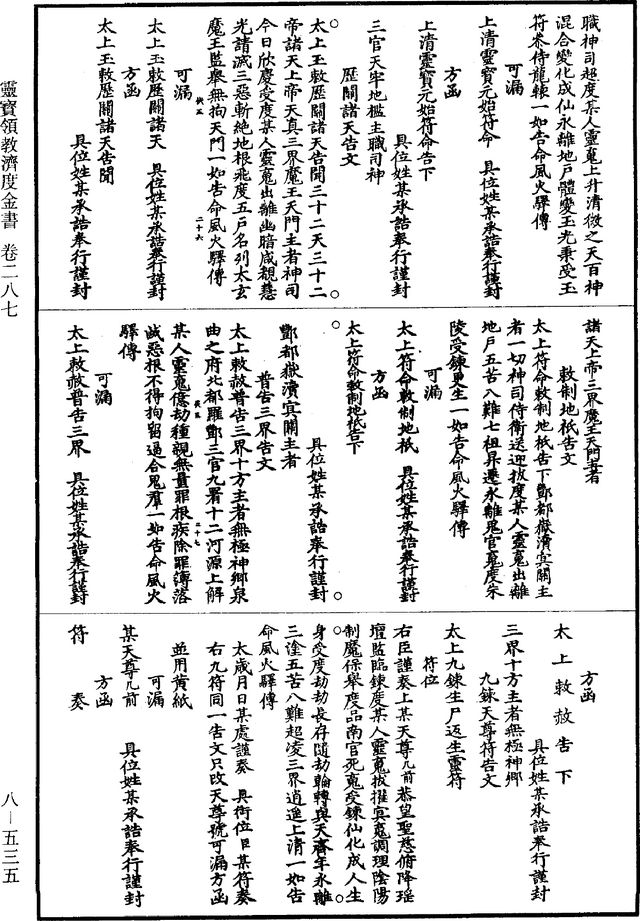 職神司超度某人靈魂上升清微之天百神
混合變化成仙永離地戶體變玉光秉受玉
符恭侍龍轅一如告命風火驛傳
可漏
上清靈寶元始符命　具位姓某承誥奉行謹封
方函
上清靈寶元始符命告下
具位姓某承誥奉行謹封
三官天牢地檻主職司神
歷關諸天告文
太上玉敕歷關諸天告聞三十二天三十二
帝諸天上帝天真三界魔王天門主者神司
今日欣慶受度某人靈魂出離幽暗咸覩慧
光請滅三惡斬絕地根飛度五戶名列太玄
魔王監舉無拘天門一如告命風火驛傳
二十六
可漏
太上玉敕歷關諸天　具位姓某承誥奉行謹封
方函
太上玉敕歷關諸天告聞
具位姓某承誥奉行謹封
諸天上帝三界魔王天門主者
敕制地祇告文
太上符命敕制地祇告下酆都嶽瀆冥關主
者一切神司侍衛送迎拔度某人靈魂出離
地戶五苦八難七祖昇遷永離鬼官魂度朱
陵受鍊更生一如告命風火驛傳
可漏
太上符命敕制地祇　具位姓某承誥奉行謹封
方函
太上符命敕制地祇告下
具位姓某承誥奉行謹封
酆都嶽瀆冥關主者
普告三界告文
太上敕赦普告三界十方主者無極神鄉泉
曲之府北都羅酆三官九署十二河源上解
某人靈魂億劫種親無量罪根疾除罪簿落
滅惡根不得拘留逼合鬼羣一如告命風火
驛傳
二十七
可漏
太上敕赦普告三界　具位姓某承誥奉行謹封
方函
太上敕赦告下
具位姓某承誥奉行謹封
三界十方主者無極神鄉
九鍊天尊符告文
太上九鍊生尸返生靈符
符位
右臣謹奏上某天尊几前恭望聖慈俯降瑤
壇監臨鍊度某人靈魂拔擢冥魂調理陰陽
制魔保舉度品南宫死魂受鍊仙化成人生
身受度劫劫長存隨劫輪轉與天齊年永離
三塗五苦八難超凌三界逍遙上清一如告
命風火驛傳
太歲月日某處謹奏　具銜位臣某符奏
右九符同一告文只改天尊號可漏方函
並用黄紙
可漏
某天尊几前　具位姓某承誥奉行謹封
方函
符　奏
靈寶領教濟度金書　卷二八七
八－五三五